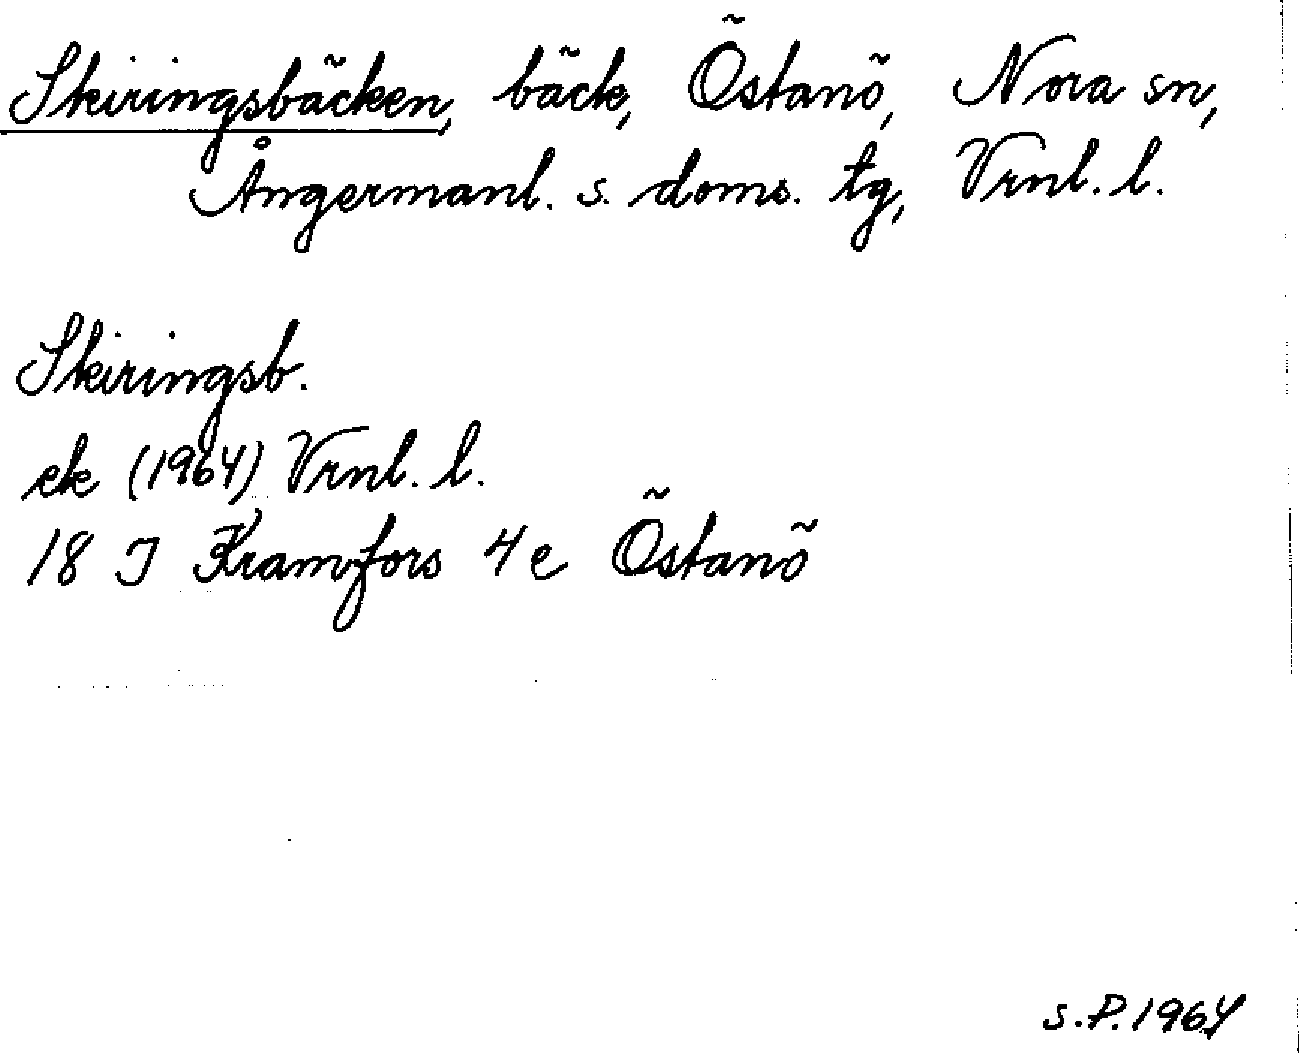 Skiringsbäcken, bäck, Östanö, Nora sn,
Ångermanl. s. doms. tg, Vrnl. l.
Skiringsb.
ek (1964) Vrnl. l.
18 I Kramfors 4 e Östanö
S.P. 1964